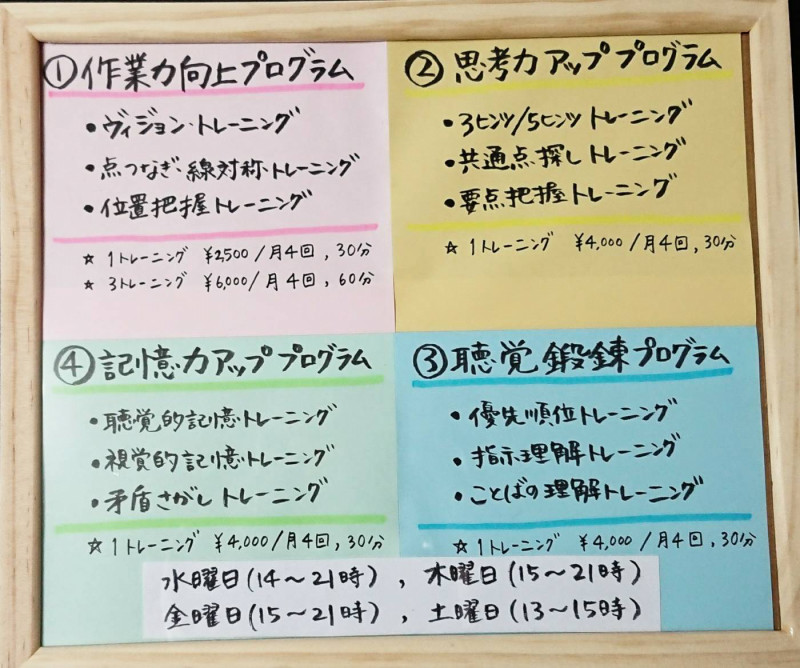 ①作業力向上プログラム
・ヴィジョン・トレーニング
・点つなぎ・線対称・トレーニング
・位置把握トレーニング
☆ 1トレーニング ¥2,500/月4回, 30分
☆ 3トレーニング ¥6,000/月4回, 60分
② 思考力アッププログラム
・3ヒンツ/5ヒンツ トレーニング
・共通点探しトレーニング
・要点把握トレーニング
☆ 1トレーニング ¥4,000/月4回, 30分
④記憶力アッププログラム
・聴覚的記憶トレーニング
・視覚的記憶トレーニング
・矛盾さがしトレーニング
☆ 1トレーニング ¥4,000/月4回, 30分
③聴覚鍛錬プログラム
・優先順位トレーニング
・指示理解トレーニング
・ことばの理解トレーニング
☆ 1トレーニング ¥4,000/月4回, 30分
水曜日(14～21時), 木曜日(15～21時)
金曜日(15～21時), 土曜日(13～15時)